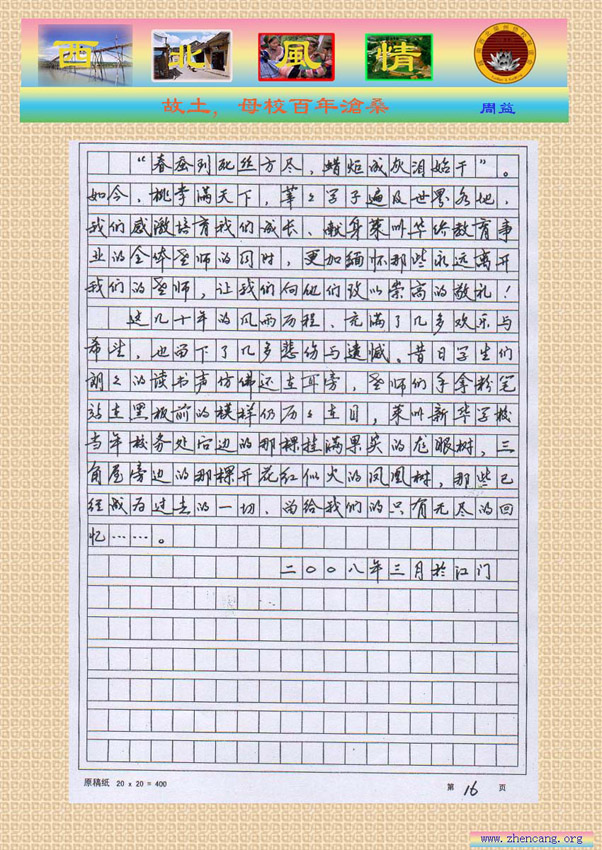 西北風情
故土，母校百年滄桑
周益
“春蚕到死丝方尽，蜡炬成灰泪始干”。
如今，桃李满天下，莘々学子遍及世界各地，
我们感激培育我们成长、献身莱州华侨教育事
业的全体圣师的同时，更加缅怀那些永远离开
我们的圣师，让我们向他们致以崇高的敬礼！
这几十年的风雨历程、充满了几多欢乐与
希望，也留下了几多悲伤与遗憾。昔日学生们
朗々的读书声仿佛还在耳旁，圣师们手拿粉笔
站在黑板前的模样仍历々在目，莱州新华学校
当年校务处右边的那棵挂满果实的龙眼树，三
角屋旁边的那棵开花红似火的凤凰树，那些已
经成为过去的一切，留给我们的只有无尽的回
忆……。
二〇〇八年三月於江门
原稿纸 20 x 20 = 400
第 16 页
www.zhencang.org